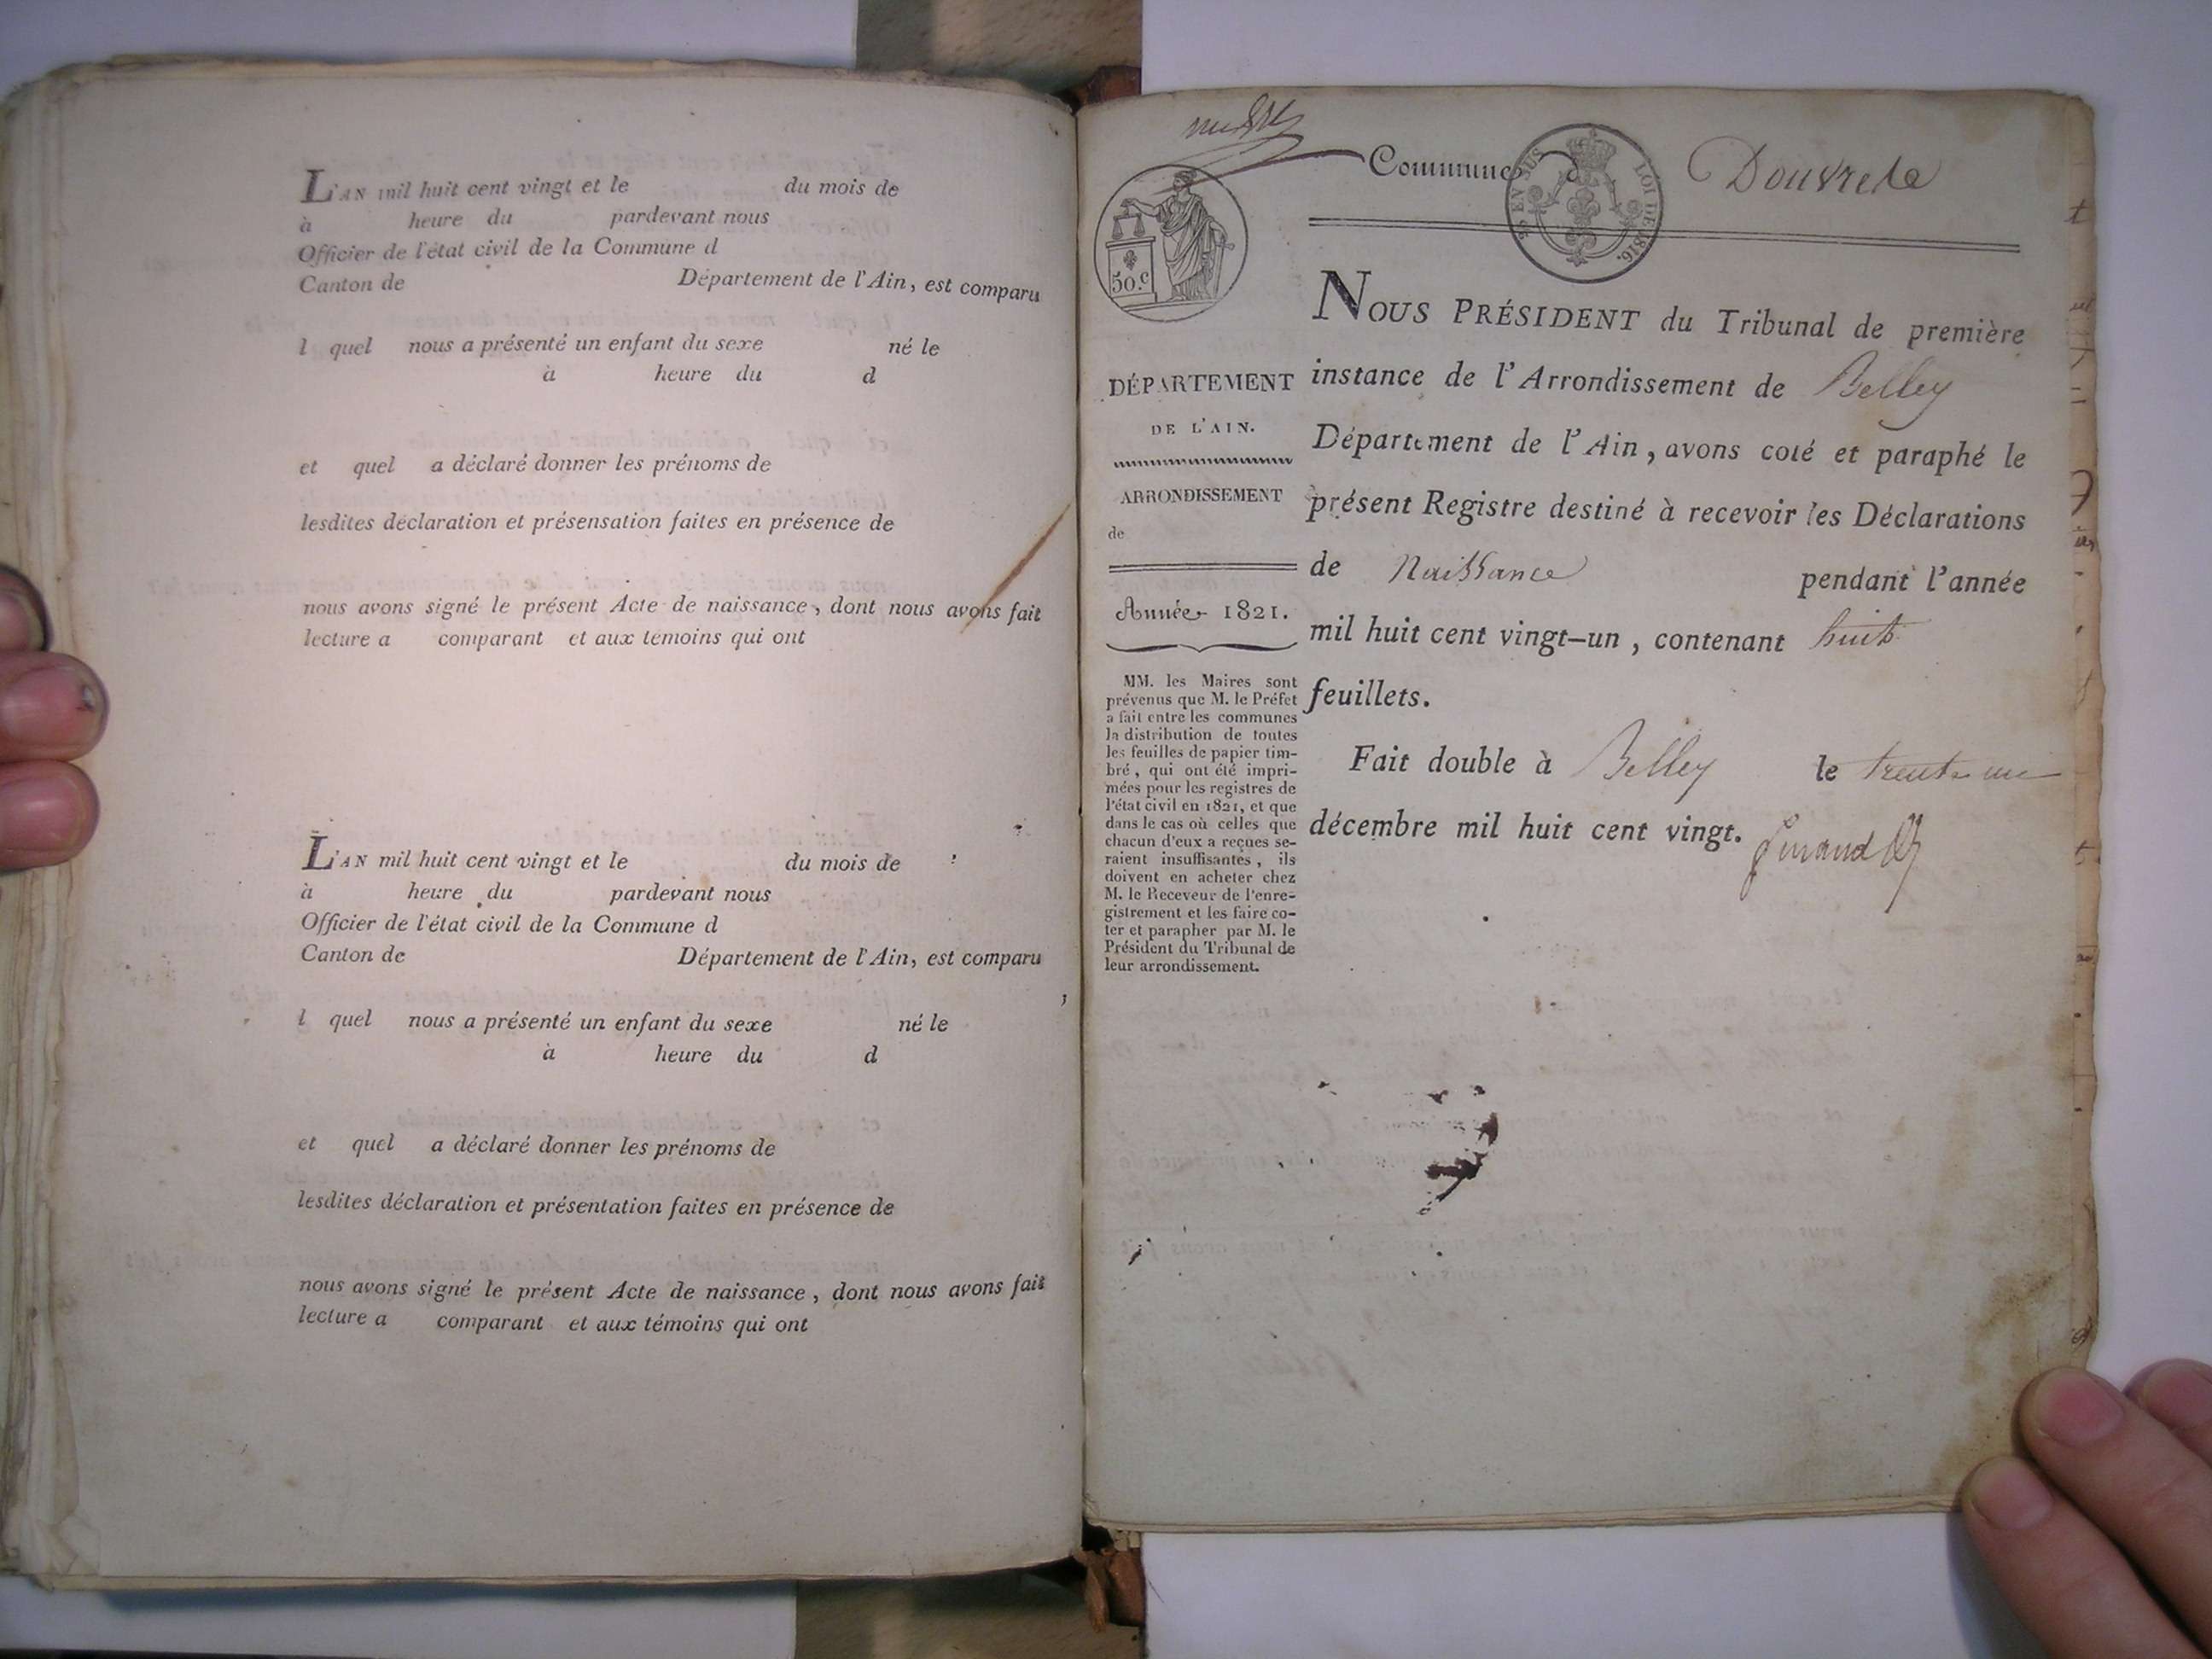 L'AN mil huit cent vingt et le du mois de
à heure du pardevant nous
Officier de l'état civil de la Commune d
Canton de Département de l'Ain, est comparu
l quel nous a présenté un enfant du sexe né le
à heure du d
et quel a déclaré donner les prénoms de
lesdites déclaration et présensation faites en présence de
nous avons signé le présent Acte de naissance, dont nous avons fait
lecture a comparant et aux témoins qui ont
L'AN mil huit cent vingt et le du mois de
à heure du pardevant nous
Officier de l'état civil de la Commune d
Canton de Département de l'Ain, est comparu
l quel nous a présenté un enfant du sexe né le
à heure du d
et quel a déclaré donner les prénoms de
lesdites déclaration et présentation faites en présence de
nous avons signé le présent Acte de naissance, dont nous avons fait
lecture a comparant et aux témoins qui ont
Commune d
EN SUS LOI DE 1816.
50.c
DÉPARTEMENT
DE L'AIN.
ARRONDISSEMENT
de
Année 1821.
MM. les Maires sont
prévenus que M. le Préfet
a fait entre les communes
la distribution de toutes
les feuilles de papier tim-
bré, qui ont été impri-
mées pour les registres de
l'état civil en 1821, et que
dans le cas où celles que
chacun d'eux a reçues se-
raient insuffisantes, ils
doivent en acheter chez
M. le Receveur de l'enre-
gistrement et les faire co-
ter et parapher par M. le
Président du Tribunal de
leur arrondissement.
NOUS PRÉSIDENT du Tribunal de première
instance de l'Arrondissement de Belley
Département de l'Ain, avons coté et paraphé le
présent Registre destiné à recevoir les Déclarations
de Naissance pendant l'année
mil huit cent vingt-un, contenant huit
feuillets.
Fait double à Belley le trente un
décembre mil huit cent vingt.